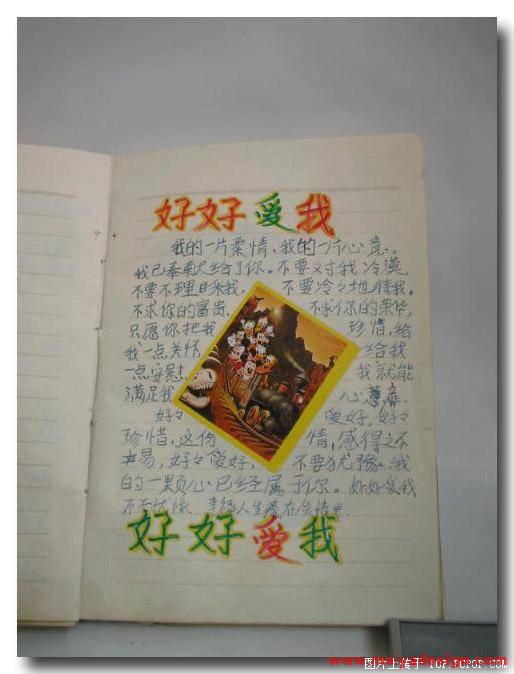 好好爱我
我的一片柔情、我的一片心意。
我已奉献给了你。不要对我冷漠
不要不理日来我, 不要冷々地待我。
不求你的富贵, 不求你的荣华,
只愿你把我 珍惜,给
我一点关怀 给我
一点安慰 我就能
满足我 心意
好々 爱好,好々
珍惜,这份 情,感得之不
易,好々爱好, 不要犹豫。我
的一颗心已经属于你。好好爱我
不 幸福人生 在 情
好好爱我
图片上传于